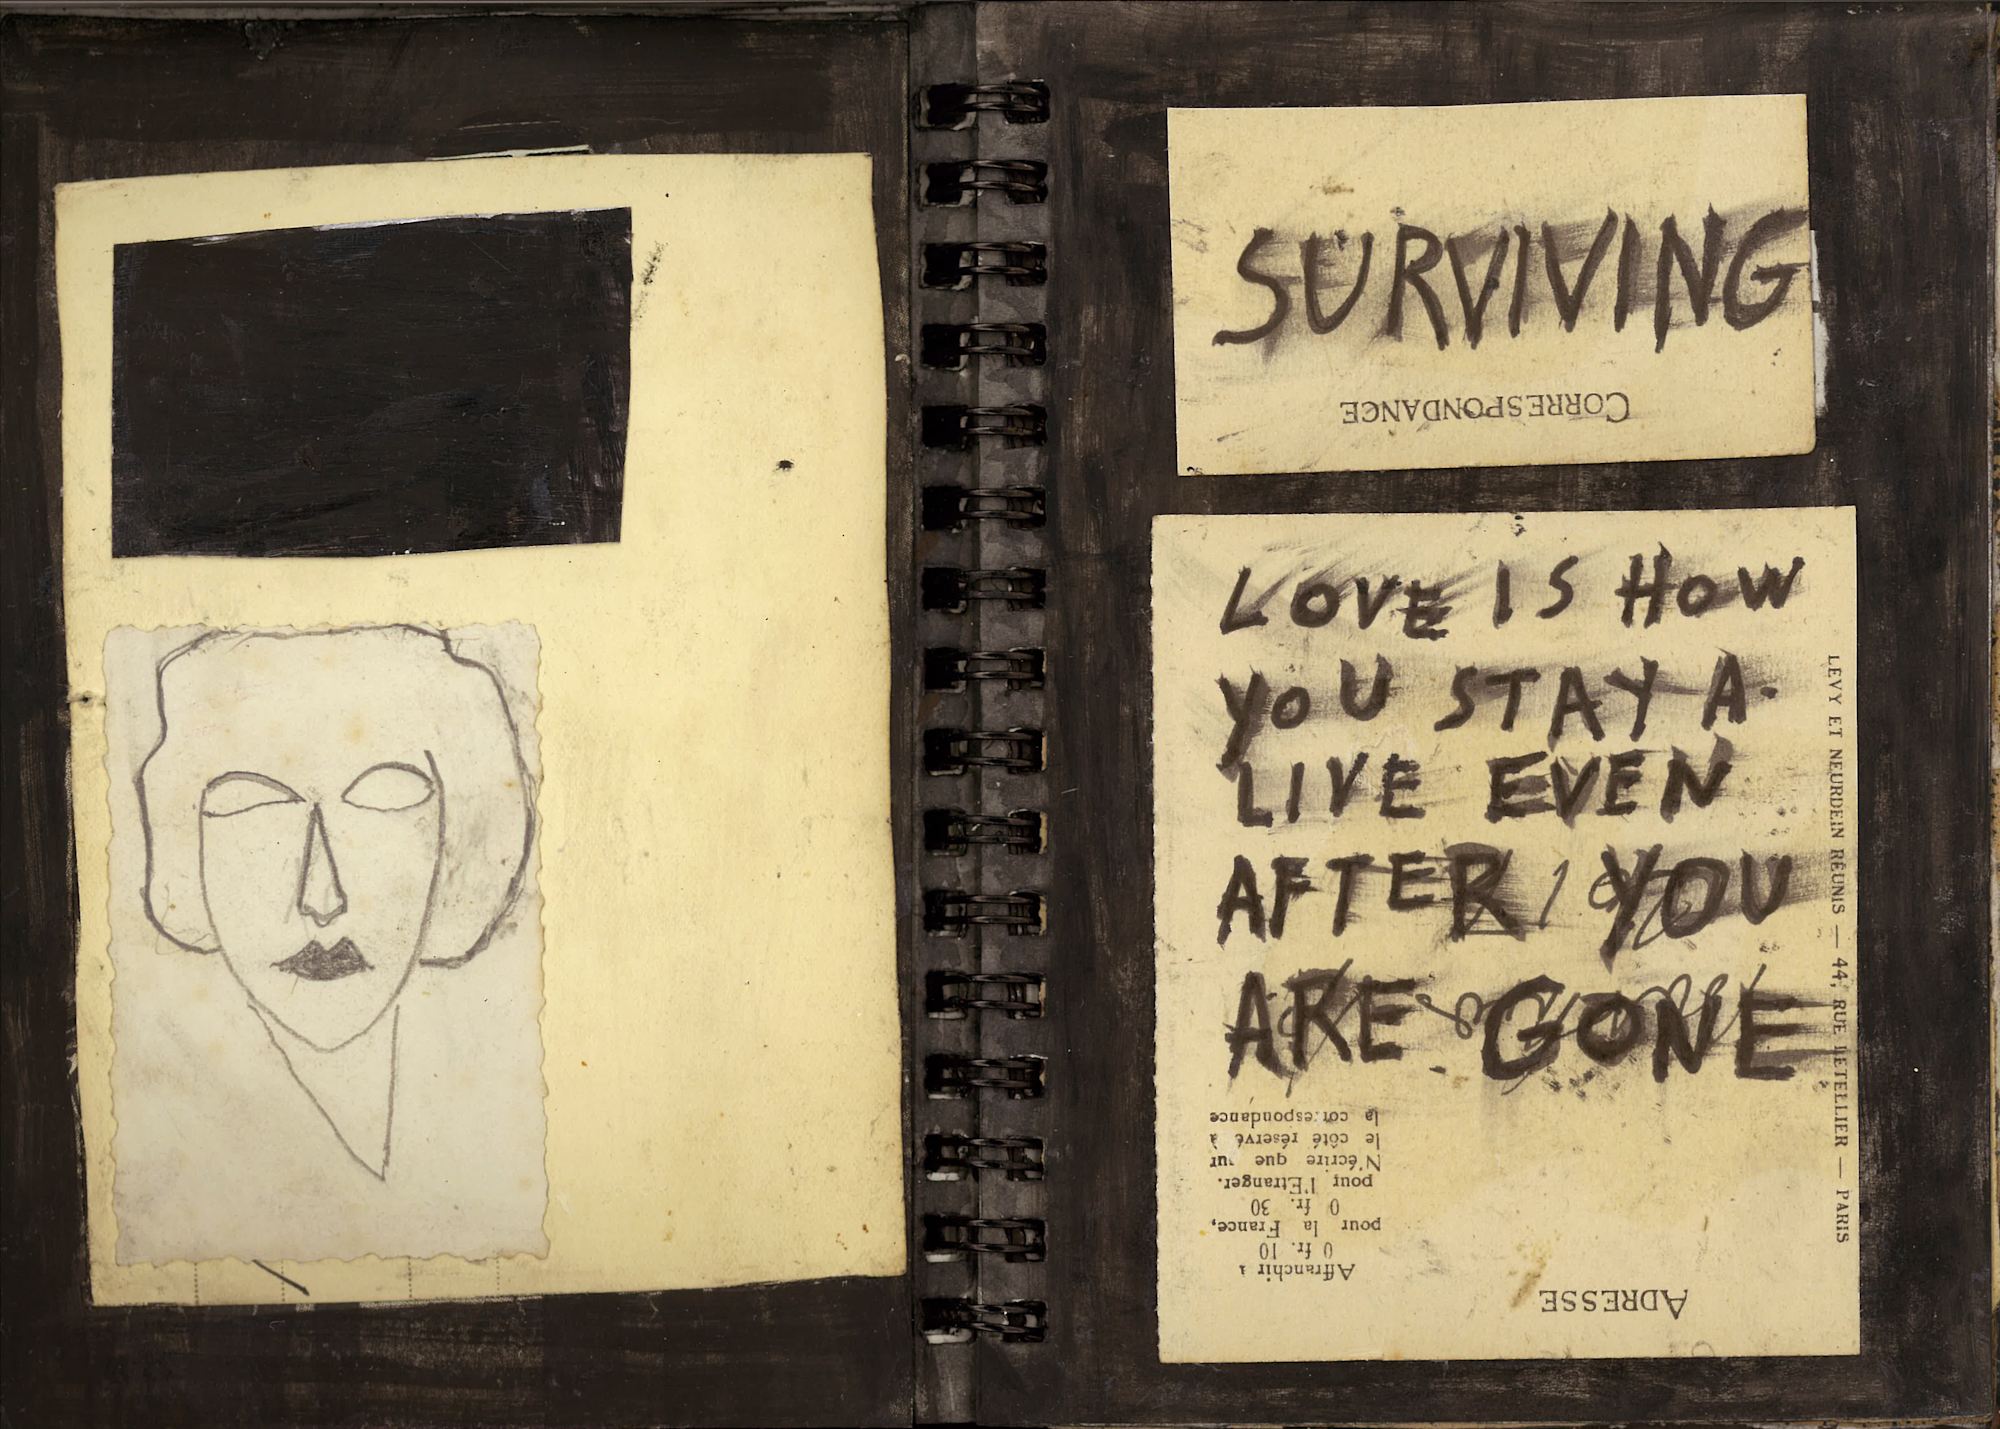 SURVIVING
CORRESPONDANCE
LOVE IS HOW
YOU STAY A-
LIVE EVEN
AFTER YOU
ARE GONE
LÉVY ET NEURDEIN RÉUNIS — 44, RUE LETELLIER — PARIS
ADRESSE
Affranchir à
0 fr. 10
pour la France,
0 fr. 30
pour l'Etranger.
N'écrire que sur
le côté réservé à
la correspondance